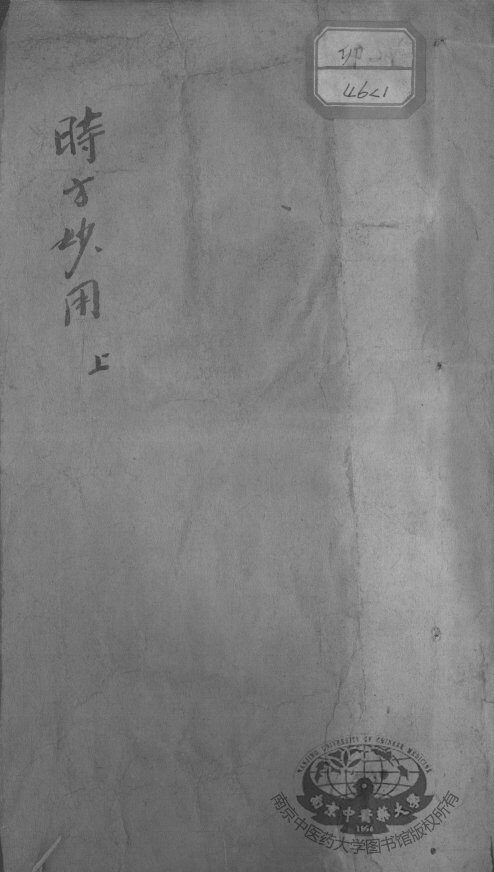 時方妙用
上
NANJING UNIVERSITY OF CHINESE MEDICINE
南京中醫藥大學
1954
南京中医药大学图书馆版权所有